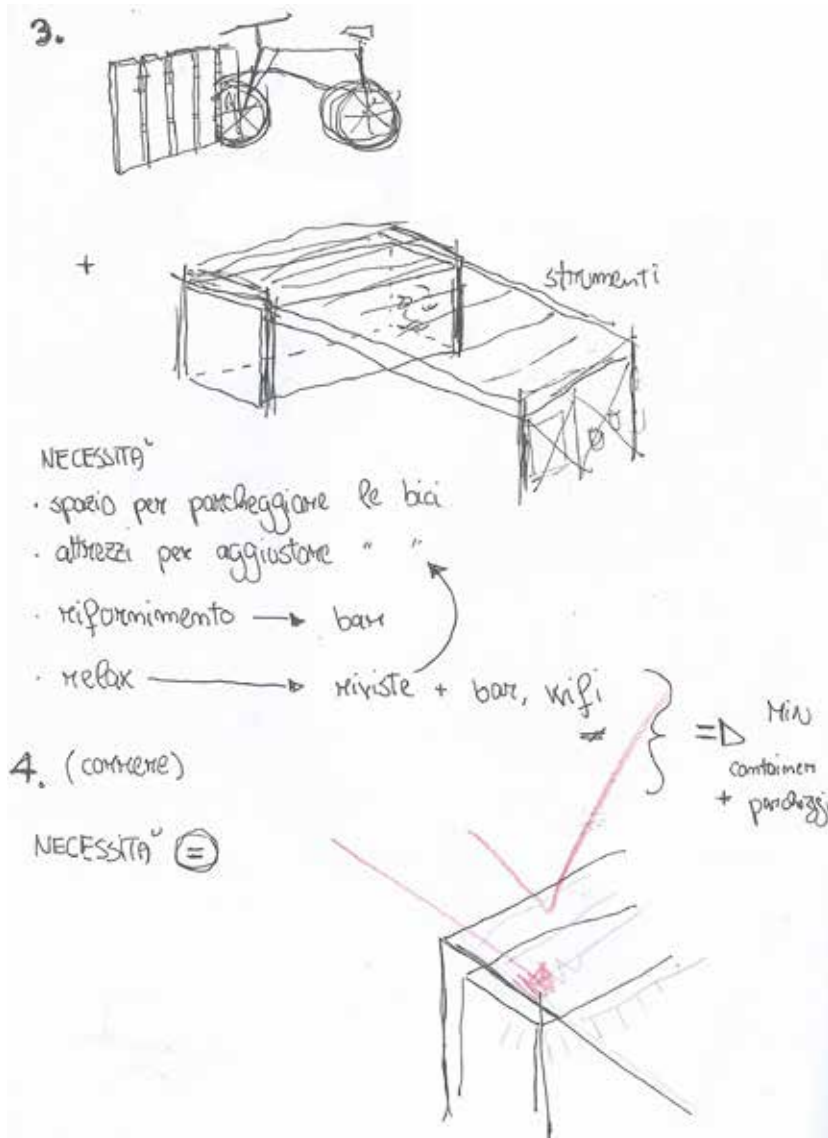 3.
+
strumenti
NECESSITA'
· spazio per parcheggiare le bici
· attrezzi per aggiustare " "
· rifornimento → bar
· relax → riviste + bar, wifi
=> MIN
container
+ parcheggi
4. (correre)
NECESSITA' =